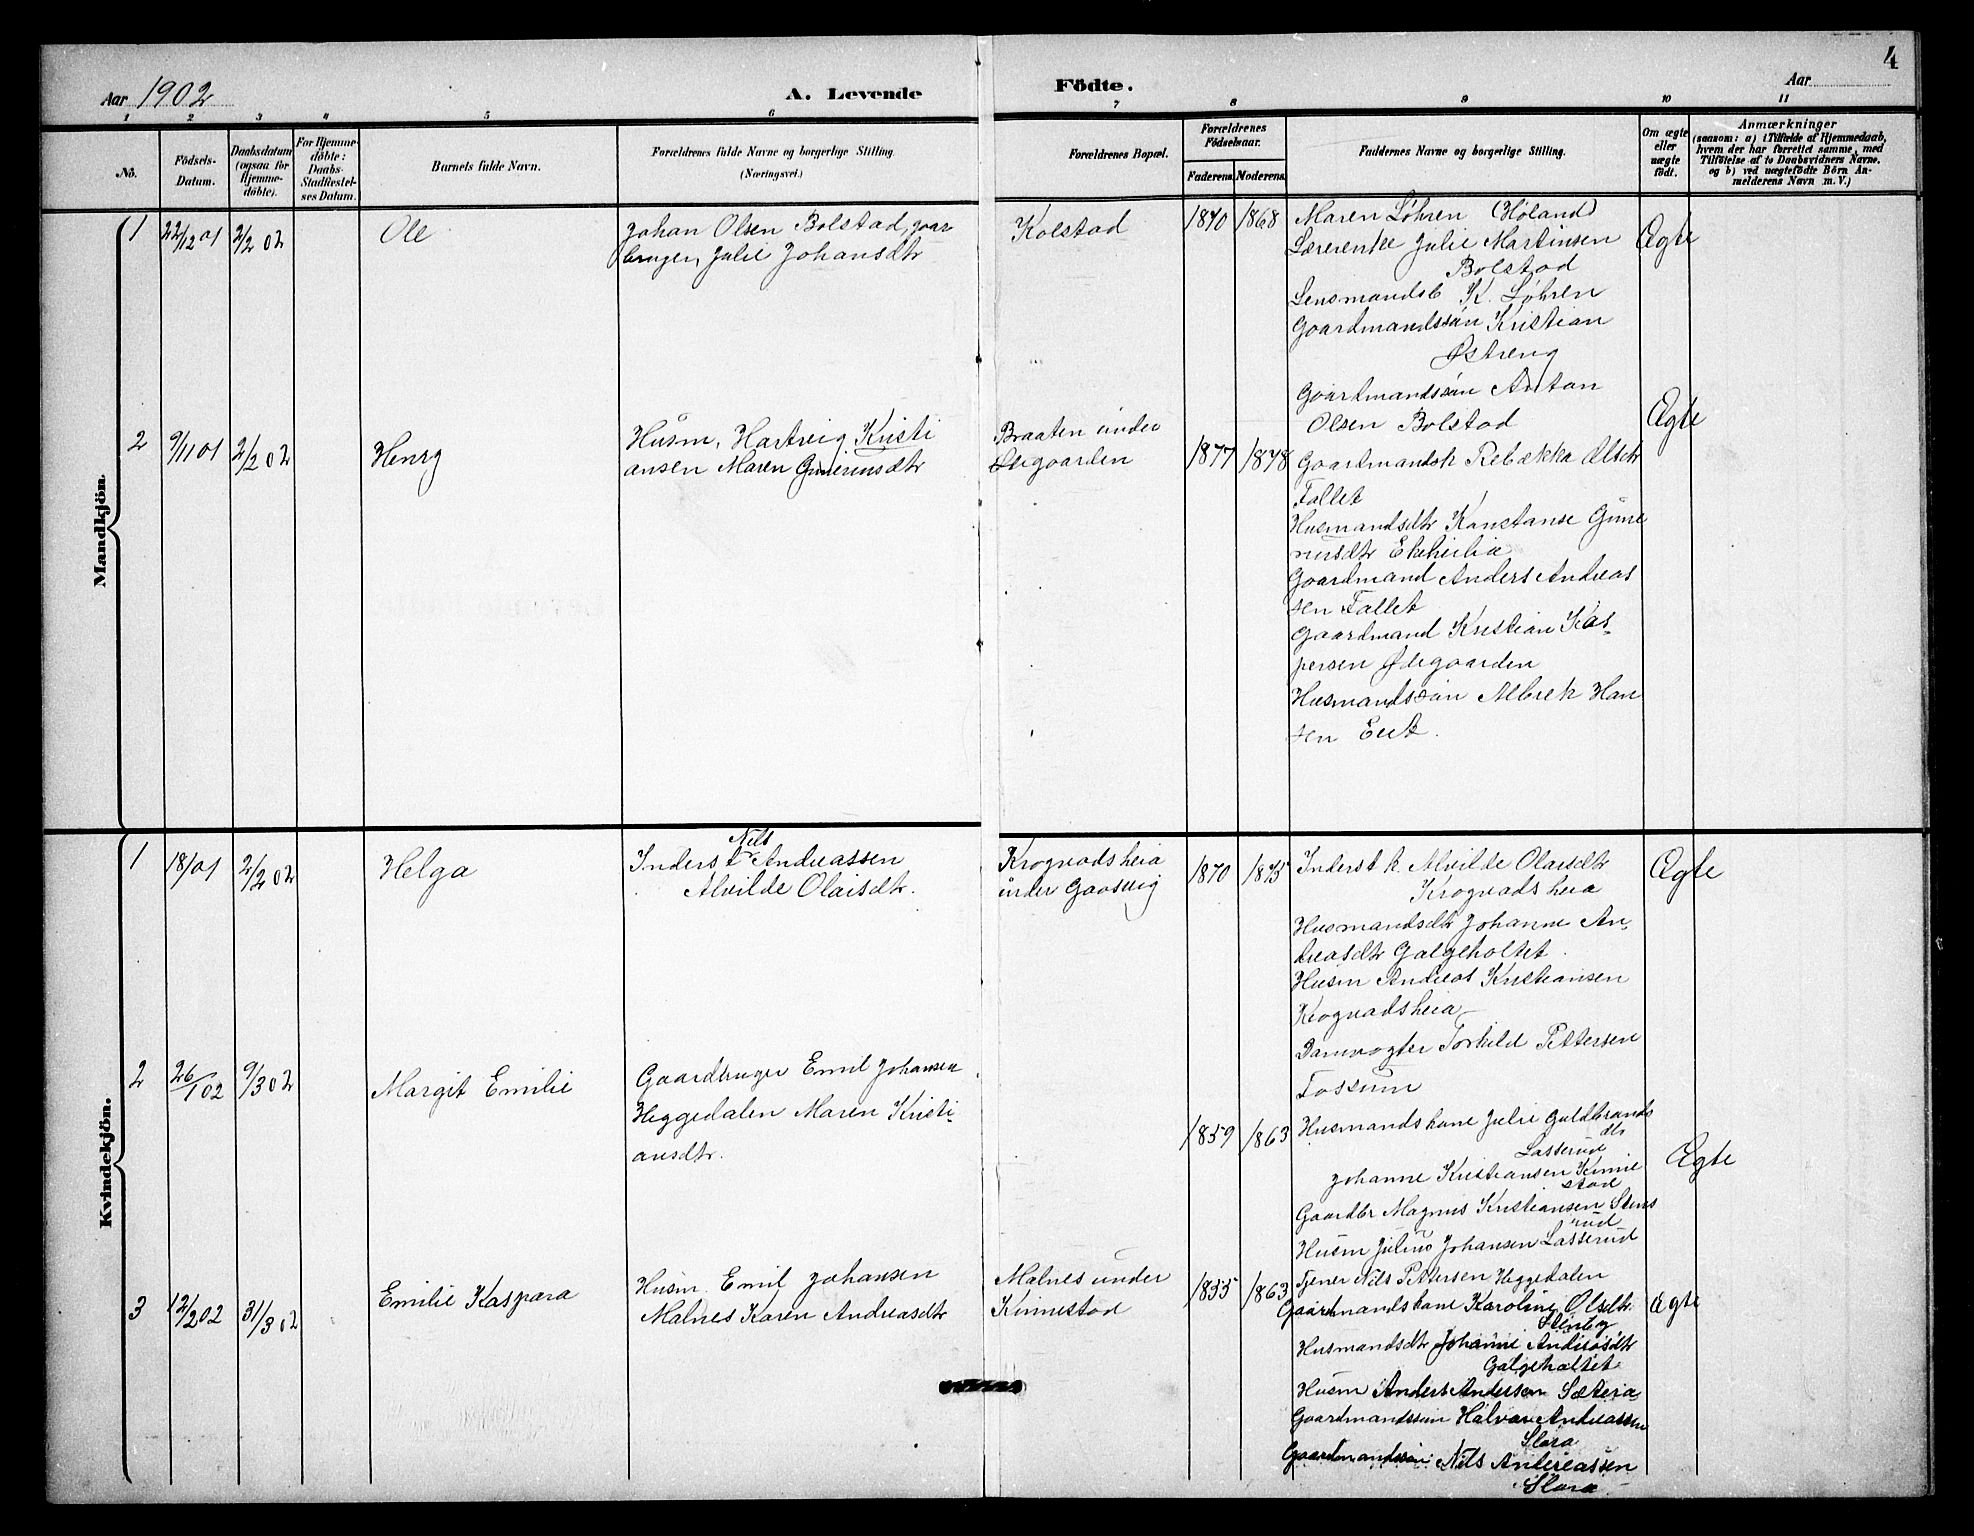 4
Aar 1902
A. Levende
Födte.
Aar
1 2 3 4 5 6 7 8 9 10 11
No.
Födsels-
Datum.
Daabsdatum
(ogsaa for
Hjemme-
döbte).
For Hjemme-
döbte:
Daabs-
Stadfæstel-
ses Datum.
Barnets fulde Navn.
Forældrenes fulde Navne og borgerlige Stilling.
(Næringsvei.)
Forældrenes Bopæl.
Forældrenes
Födselsaar.
Faderens. Moderens.
Faddernes Navne og borgerlige Stilling.
Om ægte
eller
uægte
födt.
Anmærkninger
(saasom: a) i Tilfælde af Hjemmedaab,
hvem der har forrettet samme, med
Tilföielse af to Daabsvidners Navne.
og b) ved uægtefödte Börn An-
melderens Navn m. V.)
Mandkjön.
1
22/12 01
2/2 02
Ole
Johan Olsen Bolstad, gaar
bruger, Julie Johansdtr
Kolstad
1870
1868
Maren Løhren (Høland)
Lærerenke Julie Martinsen
Bolstad
Lensmandsb K. Løhren
Gaardmandssøn Kristian
Østreng
Gaardmandssøn Anton
Olsen Bolstad
Ægte
2
9/11 01
2/2 02
Henry
Husm, Hartvig Kristi
ansen Maren Gunerusdtr
Braaten under
Ødegaarden
1877
1878
Gaardmandsk Rebekka Olsdtr
Fallet
Husmandsdtr Konstanse Gune
rusdtr Ekeheilia
Gaardmand Anders Andreas
sen Fallet
Gaardmand Kristian Kas-
persen Ødegaarden
Husmandssøn Albrek Han
sen
Ægte
Kvindekjön.
1
18/ 01
2/2 02
Helga
Nils
Inderst Andreassen
Alvilde Olaisdtr.
Krogvadsheia
under Gaasvig
1870
1875
Inderst k. Alvilde Olaisdtr
Krogvadsheia
Husmandsdtr Johanne An-
dreasdtr Galgeholtet.
Husm Andreas Kristiansen
Krogvadsheia
Damvogter Torkild Pettersen
Fossum
Ægte
2
26/1 02
9/3 02
Margit Emilie
Gaardbruger Emil Johansen
Heggedalen Maren Kristi
ansdtr.
1859
1863
Husmandskone Julie Guldbrands
dtr
Lasserud
Johanne Kristiansen Kinne
stad
Gaardbr Magnus Kristiansen Stens
rud
Husm Julius Johansen Lasserud
Tjener Nils Pettersen Heggedalen
Ægte
3
12/2 02
31/3 02
Emilie Kaspara
Husm. Emil Johansen
Malnes Karen Andreasdtr
Malnes under
Kinnestad
1855
1863
Gaardmandskone Karoline Olsdtr.
Stenby
Husmandsdtr Johanne Andreasdtr
Galgeholtet
Husm Anders Andersen Sæteia
Gaardmandssøn Halvar Andreassen
Slora
Gaardmandssøn Nils Andreassen
Slora
Ægte